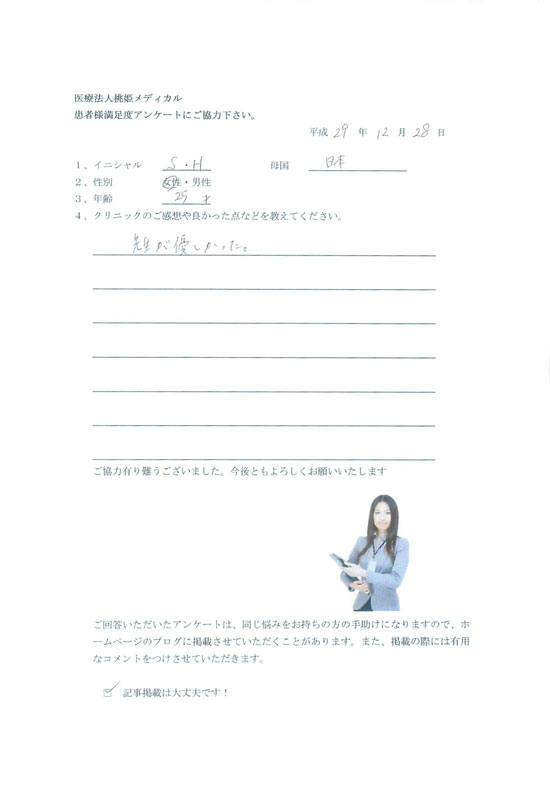 医療法人桃姫メディカル
患者様満足度アンケートにご協力下さい。
平成 29 年 12 月 28 日
1、イニシャル S・H 母国 日本
2、性別 女性・男性
3、年齢 25 才
4、クリニックのご感想や良かった点などを教えてください。
先生が優しかった。
ご協力有り難うございました。今後ともよろしくお願いいたします
ご回答いただいたアンケートは、同じ悩みをお持ちの方の手助けになりますので、ホ
ームページのブログに掲載させていただくことがあります。また、掲載の際には有用
なコメントをつけさせていただきます。
☑ 記事掲載は大丈夫です！